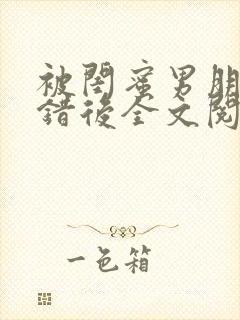 被閏蜜男朋
錯後全文閱
一色箱